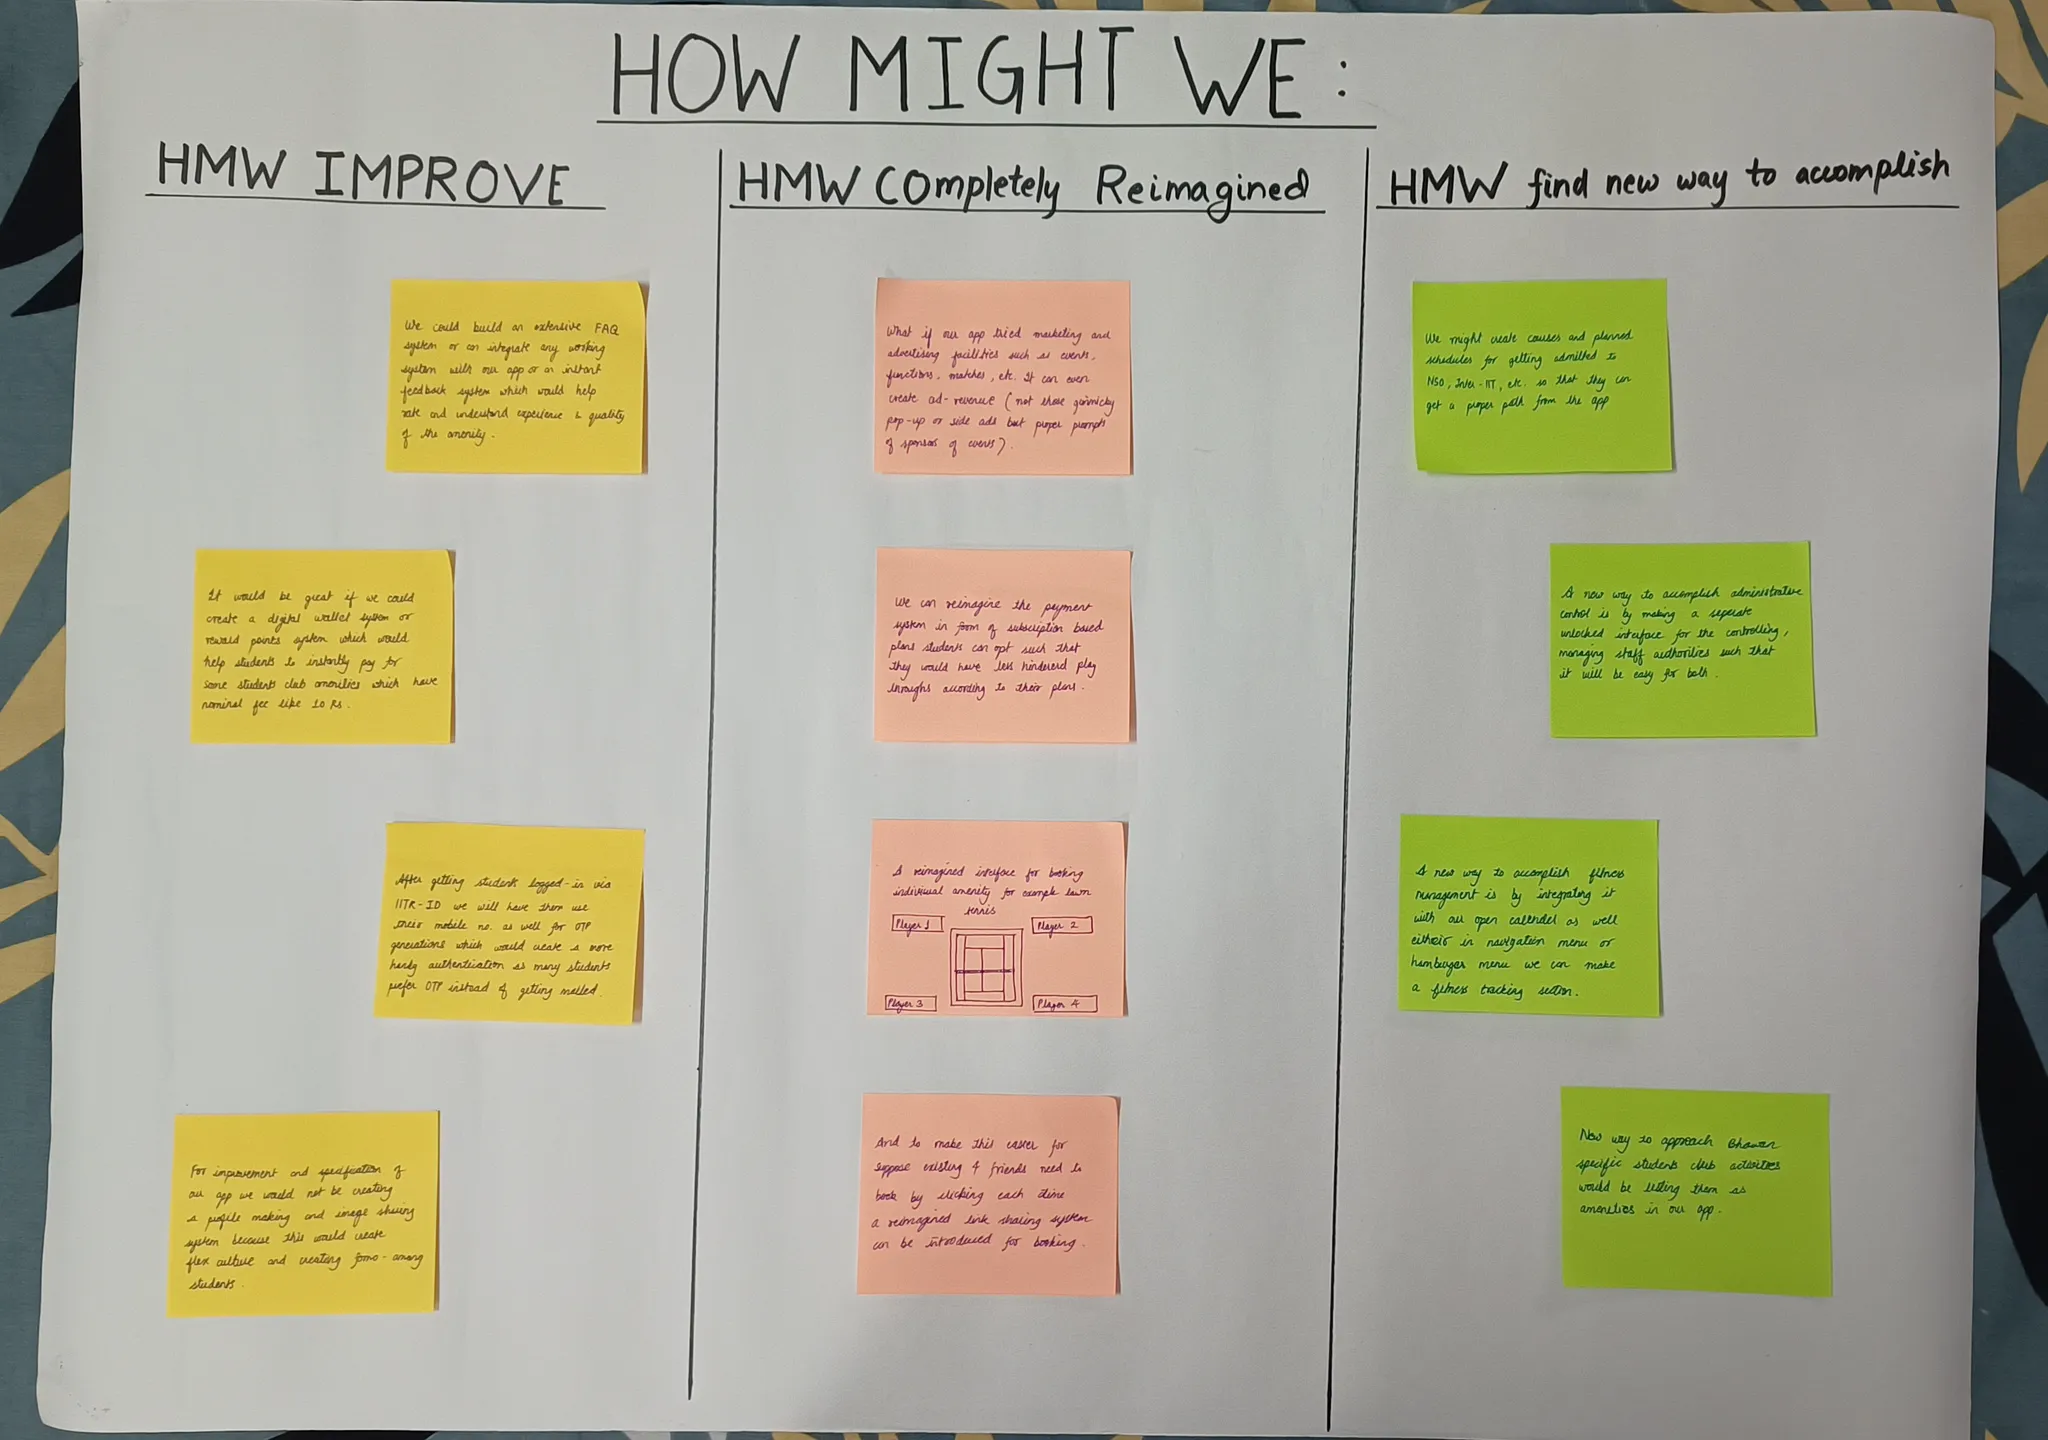 HOW MIGHT WE:
HMW IMPROVE
We could build an extensive FAQ
system or can integrate any working
system with our app or an instant
feedback system which would help
rate and understand experience & quality
of the amenity.
It would be great if we could
create a digital wallet system or
reward points system which would
help students to instantly pay for
some students club amenities which have
nominal fee like 10 Rs.
After getting student logged-in via
IITR-ID we will have them use
their mobile no. as well for OTP
generations which would create a more
handy authentication as many students
prefer OTP instead of getting mailed.
For improvement and specification of
our app we would not be creating
a profile making and image sharing
system because this would create
flex culture and creating fomo-among
students.
HMW COmpletely Reimagined
What if our app tried marketing and
advertising facilities such as events,
functions, matches, etc. It can even
create ad-revenue (not those gimmicky
pop-up or side ads but proper prompts
of sponsors of events).
We can reimagine the payment
system in form of subscription based
plans students can opt such that
they would have less hindererd play
throughs according to their plans.
A reimagined interface for booking
individual amenity for example lawn
tennis
Player 1
Player 2
Player 3
Player 4
And to make this easier for
suppose existing 4 friends need to
book by clicking each time
a reimagined link sharing system
can be introduced for booking.
HMW find new way to accomplish
We might create courses and planned
schedules for getting admitted to
NSO, Inter-IIT, etc. so that they can
get a proper path from the app
A new way to accomplish administrative
control is by making a seperate
unlocked interface for the controlling,
managing staff authorities such that
it will be easy for both.
A new way to accomplish fitness
management is by integrating it
with our open calender as well
either in navigation menu or
hamburger menu we can make
a fitness tracking section.
New way to approach Bhawan
specific students club activities
would be listing them as
amenities in our app.